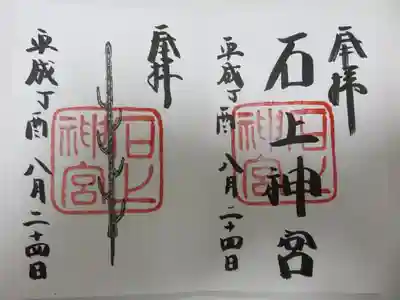 奉拝
石上神宮
平成丁酉 八月二十四日
石上神宮
奉拝
平成丁酉 八月二十四日
石上神宮